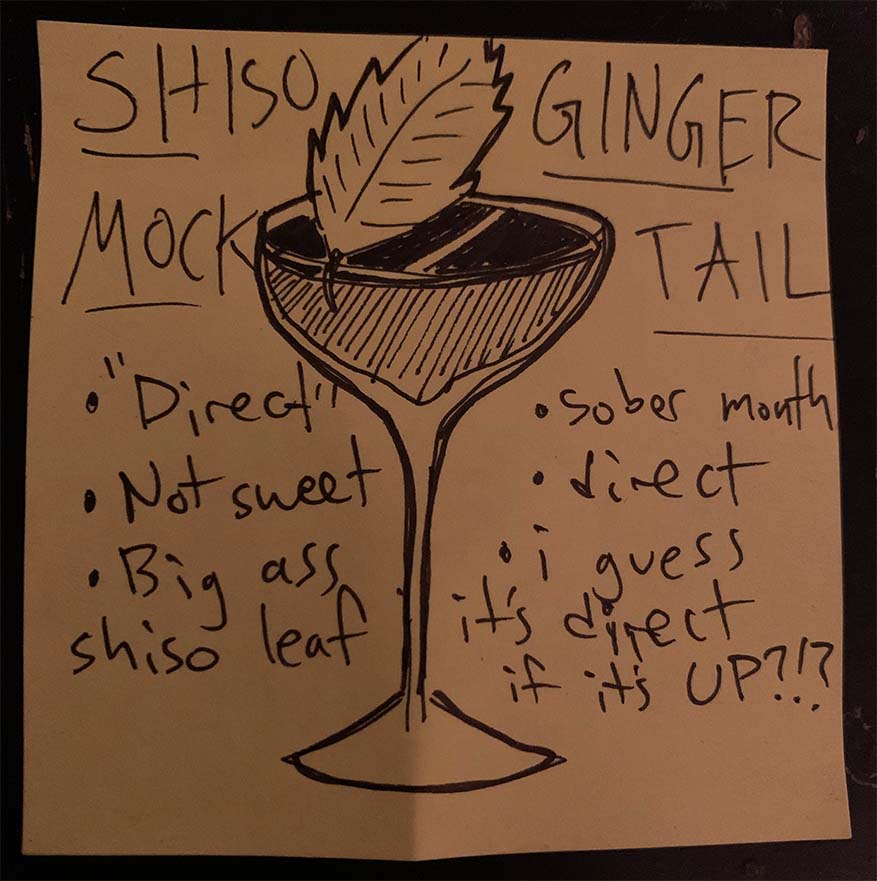 SHISO GINGER
MOCK TAIL
• "Direct"
• Not sweet
• Big ass
shiso leaf
• sober mouth
• direct
• i guess
it's direct
if it's UP?!?